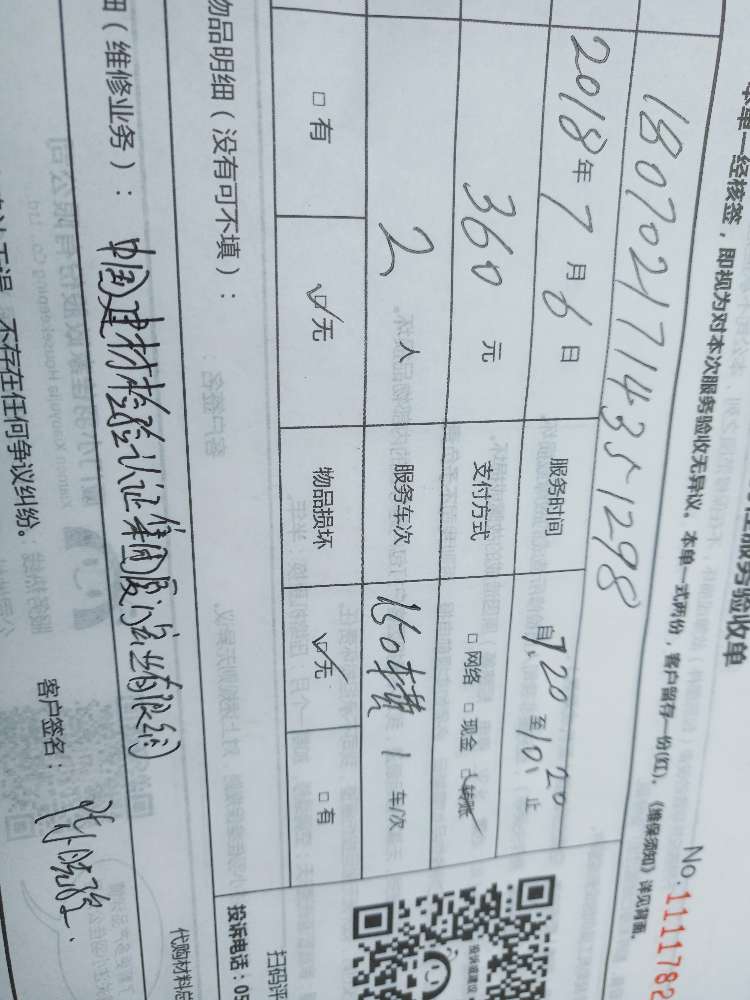 服务验收单
No.1111782
本单一经核签，即视为对本次服务验收无异议。本单一式两份，客户留存一份(红)。《维保须知》详见背面。
1807021714351298
2018年7月6日 服务时间 自7.20至10:20止
360元 支付方式 □网络 □现金 ☑转账
2人 服务车次 150车 1 车/次
□有 ☑无 物品损坏 ☑无 □有
物品明细（没有可不填）：
扫码评
投诉电话：05
（维修业务）：中国建材检验认证集团厦门宏业有限公司
代购材料总
不存在任何争议纠纷。
客户签名：